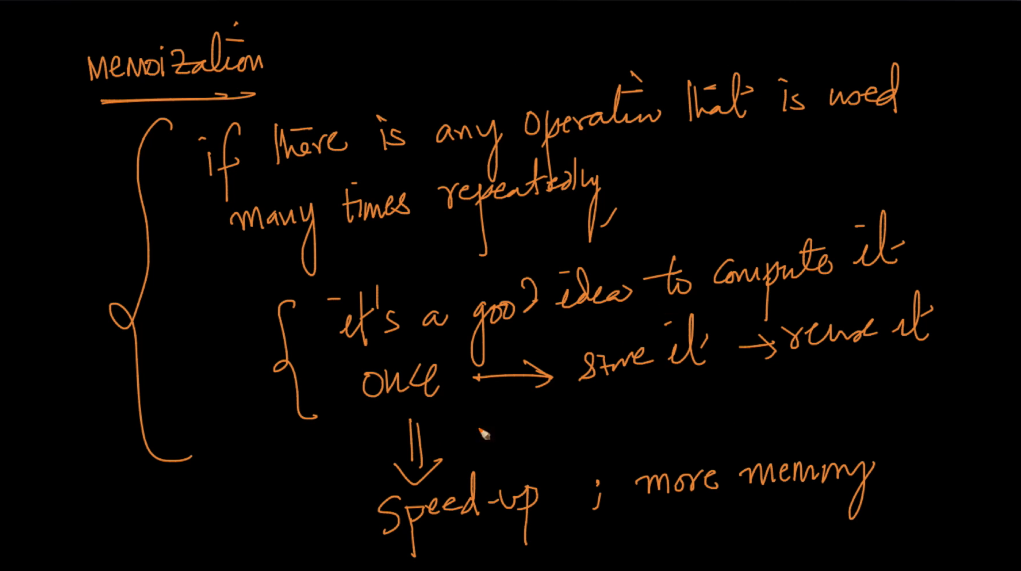 memoization
if there is any operation that is used
many times repeatedly,
it's a good idea to compute it
once → store it → reuse it
⇓
Speed-up ; more memory